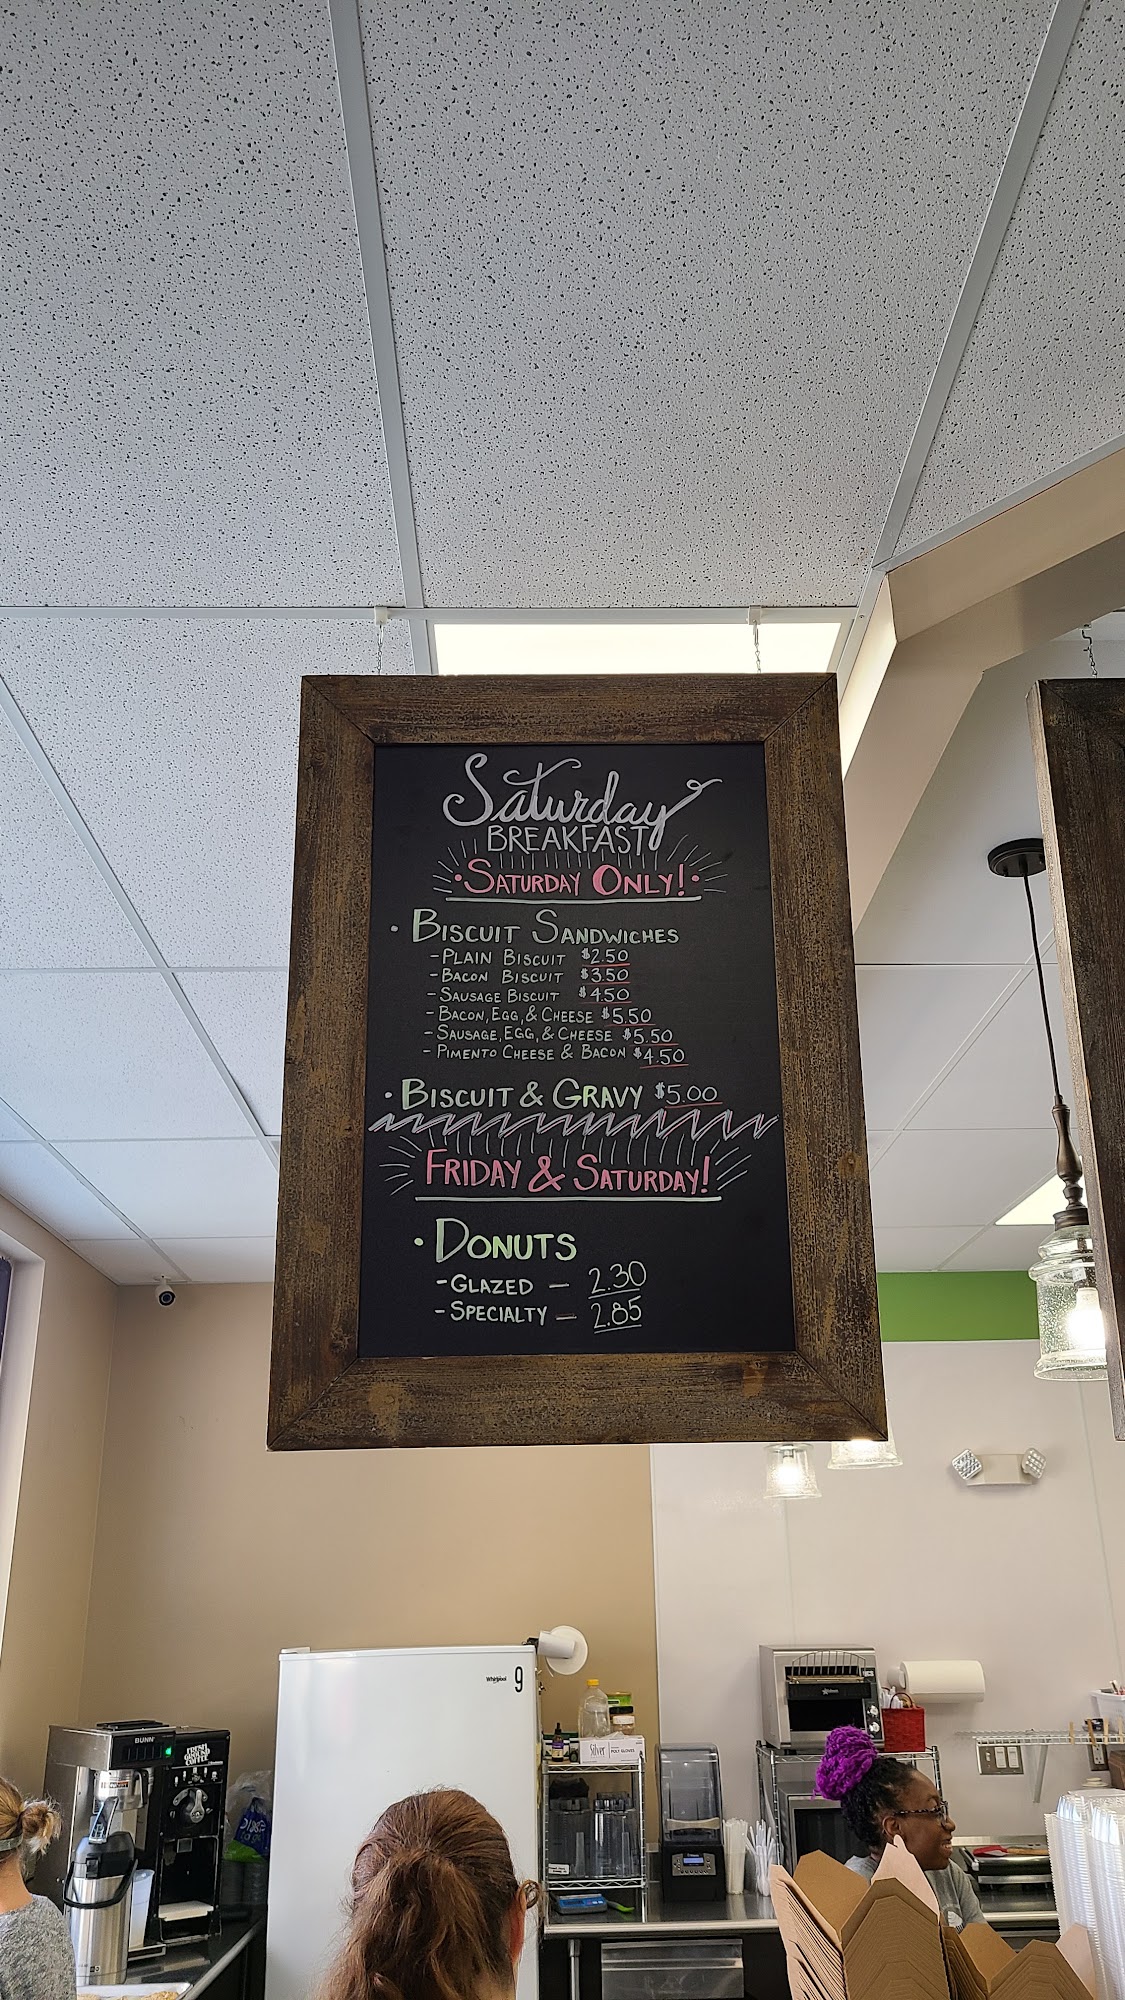 Saturday
BREAKFAST
• SATURDAY ONLY! •
• BISCUIT SANDWICHES
- PLAIN BISCUIT $2.50
- BACON BISCUIT $3.50
- SAUSAGE BISCUIT $4.50
- BACON, EGG, & CHEESE $5.50
- SAUSAGE, EGG, & CHEESE $5.50
- PIMENTO CHEESE & BACON $4.50
• BISCUIT & GRAVY $5.00
FRIDAY & SATURDAY!
• DONUTS
- GLAZED — 2.30
- SPECIALTY — 2.85
Whirlpool
9
BUNN
FRESH
GROUND
COFFEE
Silver
POLY GLOVES